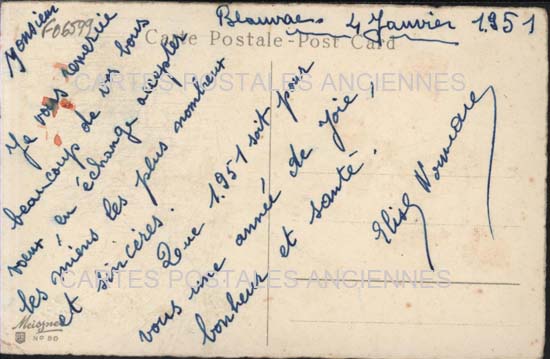 Beauvais 4 Janvier 1951
Carte Postale-Post Card
F06599
Monsieur
Je vous remercie
beaucoup de vos bons
voeux en échange accepter
les miens les plus nombreux
et sincères.
Que 1.951 soit pour
vous une année de joie,
bonheur et santé.
Elise
CARTES POSTALES ANCIENNES
CARTES POSTALES ANCIENNES
Meissner
No 90